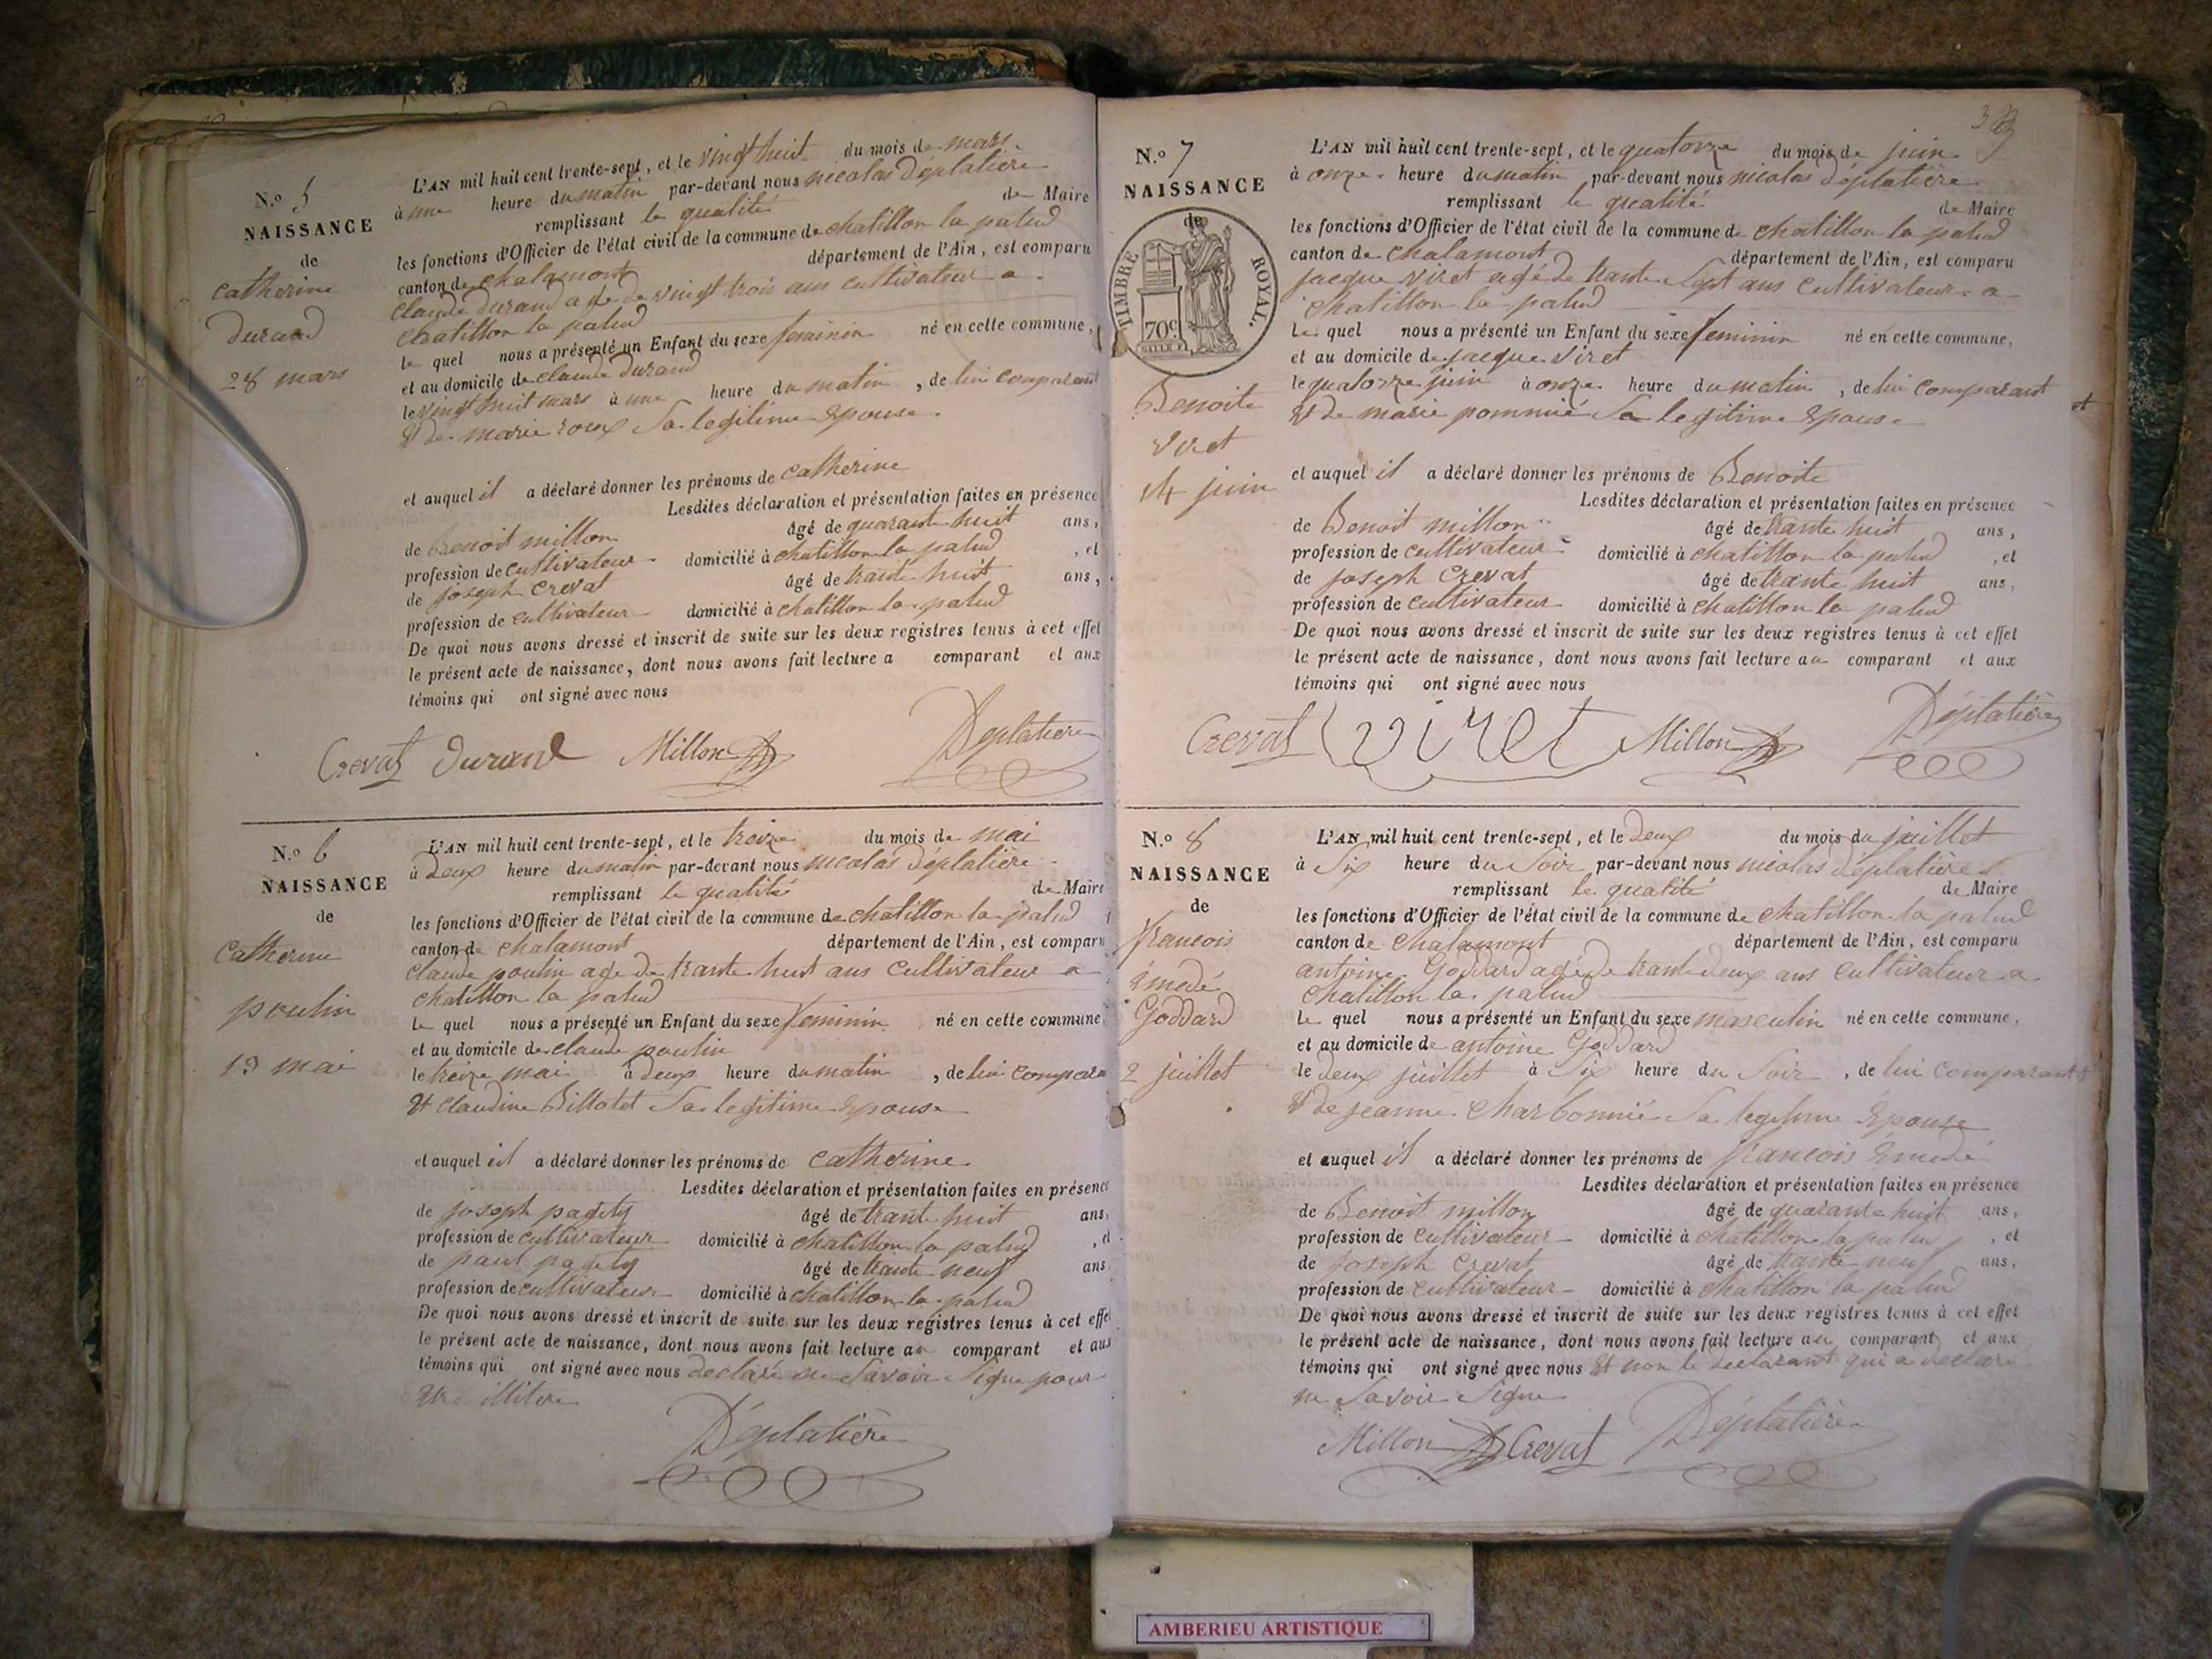 N.º 5
NAISSANCE
de
Catherine
durand
28 mars
L'AN mil huit cent trente-sept, et le vingt huit du mois de mars
à une heure du matin par-devant nous nicolas Déplatière
remplissant la qualité de Maire
les fonctions d'Officier de l'état civil de la commune de chatillon la palud
canton de chalamont département de l'Ain, est comparu
Claude durand agé de vingt trois ans cultivateur a
Chatillon la palud
le quel nous a présenté un Enfant du sexe feminin né en cette commune,
et au domicile de claude durand
le vingt huit mars à une heure du matin, de lui comparant
Et de marie roux Sa legitime Epouse.
et auquel il a déclaré donner les prénoms de Catherine
Lesdites déclaration et présentation faites en présence
de Benoit millon âgé de quarante huit ans,
profession de cultivateur domicilié à chatillon la palud, et
de joseph Crevat âgé de trante huit ans,
profession de cultivateur domicilié à chatillon la palud
De quoi nous avons dressé et inscrit de suite sur les deux registres tenus à cet effet
le présent acte de naissance, dont nous avons fait lecture a comparant et aux
témoins qui ont signé avec nous
Crevat durand Millon Déplatière
N.º 6
NAISSANCE
de
Catherine
poulin
13 mai
L'AN mil huit cent trente-sept, et le treize du mois de mai
à Deux heure du matin par-devant nous nicolas Déplatière
remplissant la qualité de Maire
les fonctions d'Officier de l'état civil de la commune de chatillon la palud
canton de chalamont département de l'Ain, est comparu
Claude poulin age de trante huit ans Cultivateur a
chatillon la palud
le quel nous a présenté un Enfant du sexe feminin né en cette commune
et au domicile de claude poulin
le treize mai à deux heure du matin, de lui compara
Et claudine Billotet Sa legitime Epouse
et auquel il a déclaré donner les prénoms de Catherine
Lesdites déclaration et présentation faites en présence
de joseph pagety âgé de trante huit ans,
profession de cultivateur domicilié à chatillon la palud, et
de paul pagety âgé de trante neuf ans
profession de cultivateur domicilié à chatillon la palud
De quoi nous avons dressé et inscrit de suite sur les deux registres tenus à cet effe
le présent acte de naissance, dont nous avons fait lecture au comparant et aux
témoins qui ont signé avec nous declaré ne Savoir Signe pour
illitere
Déplatière
N.º 7
NAISSANCE
de
TIMBRE ROYAL.
70c
Benoite
Viret
14 juin
L'AN mil huit cent trente-sept, et le quatorze du mois de juin
à onze heure du matin par-devant nous nicolas Déplatière
remplissant la qualité de Maire
les fonctions d'Officier de l'état civil de la commune de chatillon la palud
canton de Chalamont département de l'Ain, est comparu
jacque Viret agé de trante Sept ans Cultivateur a
Chatillon la palud
le quel nous a présenté un Enfant du sexe feminin né en cette commune,
et au domicile de jacque Viret
le quatorze juin à onze heure du matin, de lui Comparant
Et de marie pommié Sa legitime Epouse
et auquel il a déclaré donner les prénoms de Benoite
Lesdites déclaration et présentation faites en présence
de Benoit millon âgé de trante huit ans,
profession de cultivateur domicilié à chatillon la palud, et
de joseph Crevat âgé de trante huit ans,
profession de cultivateur domicilié à chatillon la palud
De quoi nous avons dressé et inscrit de suite sur les deux registres tenus à cet effet
le présent acte de naissance, dont nous avons fait lecture au comparant et aux
témoins qui ont signé avec nous
Crevat viret Millon Déplatière
N.º 8
NAISSANCE
de
francois
émedé
Goddard
2 juillet
L'AN mil huit cent trente-sept, et le Deux du mois du juillet
à Six heure du Soir par-devant nous nicolas Déplatière
remplissant la qualité de Maire
les fonctions d'Officier de l'état civil de la commune de chatillon la palud
canton de Chalamont département de l'Ain, est comparu
antoine Goddard agé de trante deux ans cultivateur a
chatillon la palud
le quel nous a présenté un Enfant du sexe masculin né en cette commune,
et au domicile de antoine Goddard
le deux juillet à Six heure du Soir, de lui comparant
Et de jeanne Charbonnié Sa legitime Epouse
et auquel il a déclaré donner les prénoms de francois Emedé
Lesdites déclaration et présentation faites en présence
de Benoit millon âgé de quarante huit ans,
profession de cultivateur domicilié à chatillon la palud, et
de joseph Crevat âgé de trante neuf ans,
profession de cultivateur domicilié à chatillon la palud
De quoi nous avons dressé et inscrit de suite sur les deux registres tenus à cet effet
le présent acte de naissance, dont nous avons fait lecture au comparant et aux
témoins qui ont signé avec nous Et non le declarant qui a declaré
ne Savoir Signe
Millon Crevat Déplatière
AMBERIEU ARTISTIQUE